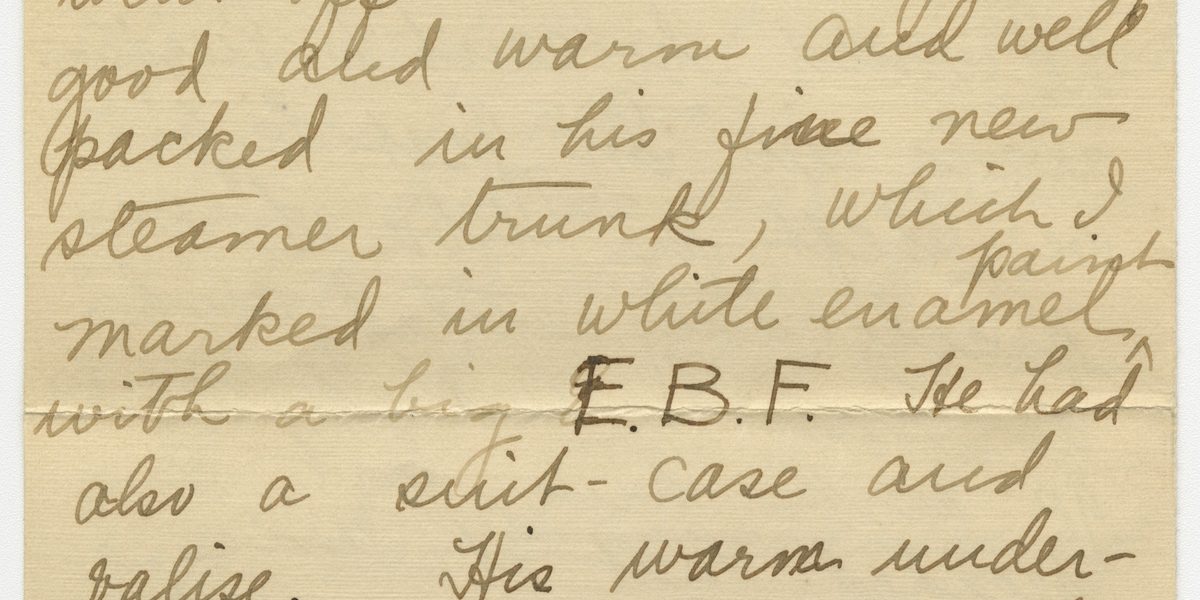 good and warm and well
packed in his fine new
steamer trunk, which I
paint
marked in white enamel^
with a big E. B. F. He had
also a suit-case and
valise. His warm under-